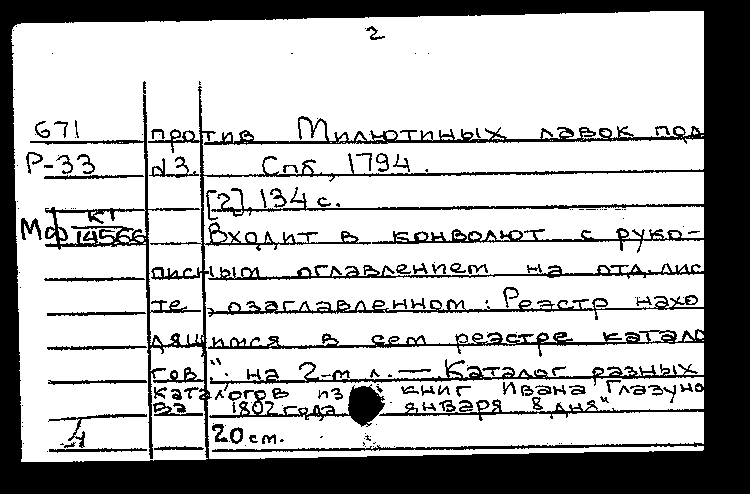 2
671 против Милютиных лавок под
Р-33 №3. Спб, 1794.
[2], 134 с.
Мф К1/14566 Входит в конволют с руко-
писным оглавлением на отд. лис
те, озаглавленном: Реэстр нахо
дящимся в сем реэстре катало
гов": на 2-м л. — Каталог разных
каталогов из книг Ивана Глазуно
ва 1802 года января 8 дня".
4 20 см.